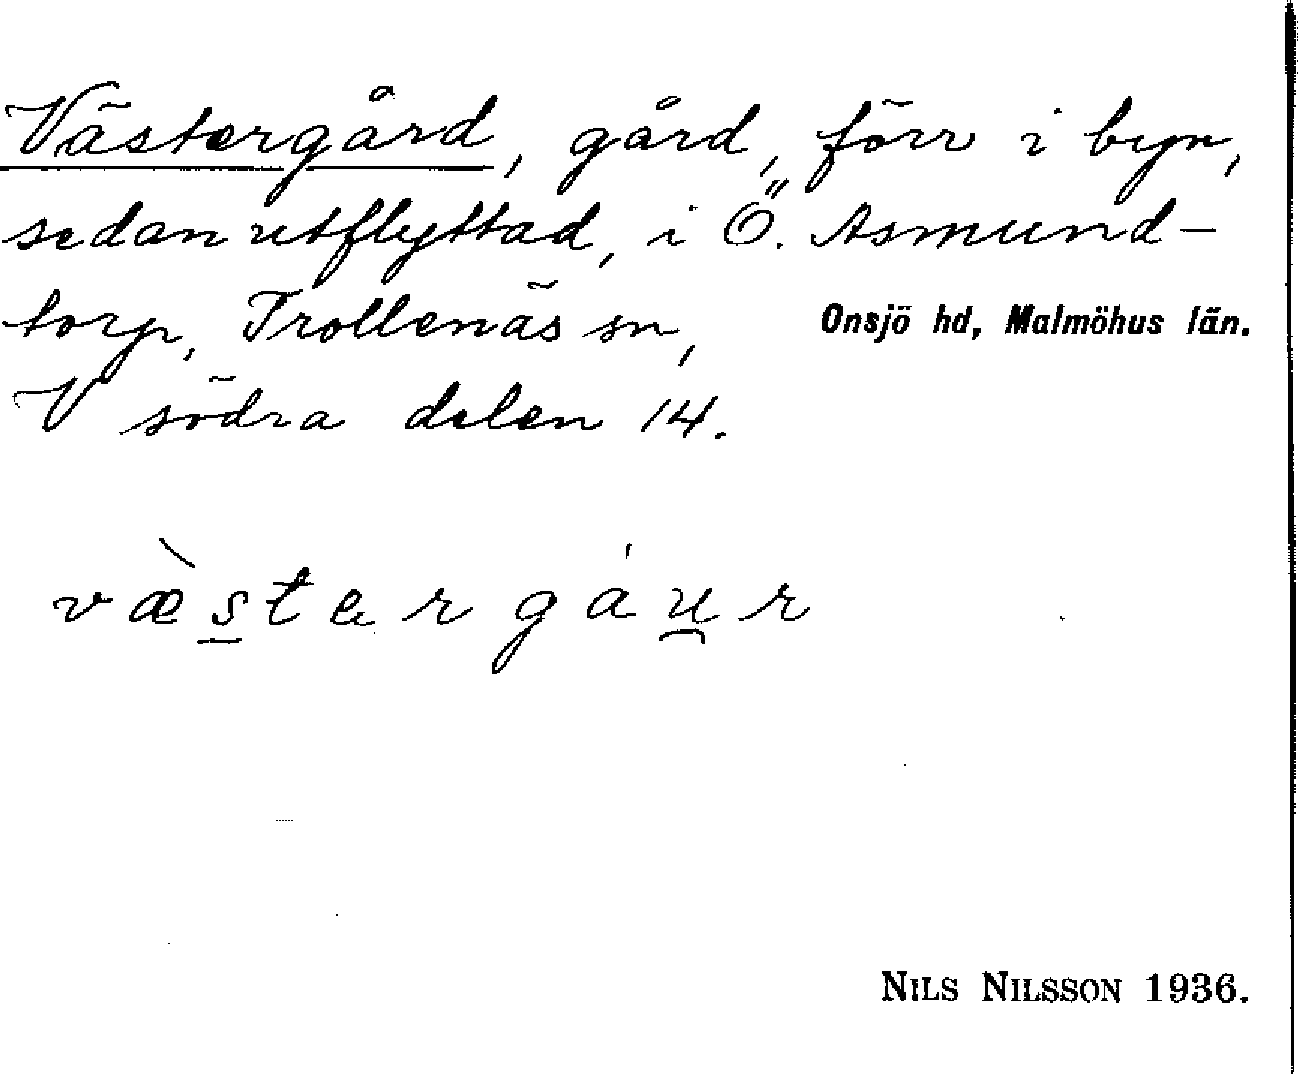 Västergård, gård, förr i byn,
sedan utflyttad, i Ö. Asmund-
torp, Trollenäs sn, Onsjö hd, Malmöhus län.
V södra delen 14.
væ̀s̲tergáu̯r
NILS NILSSON 1936.